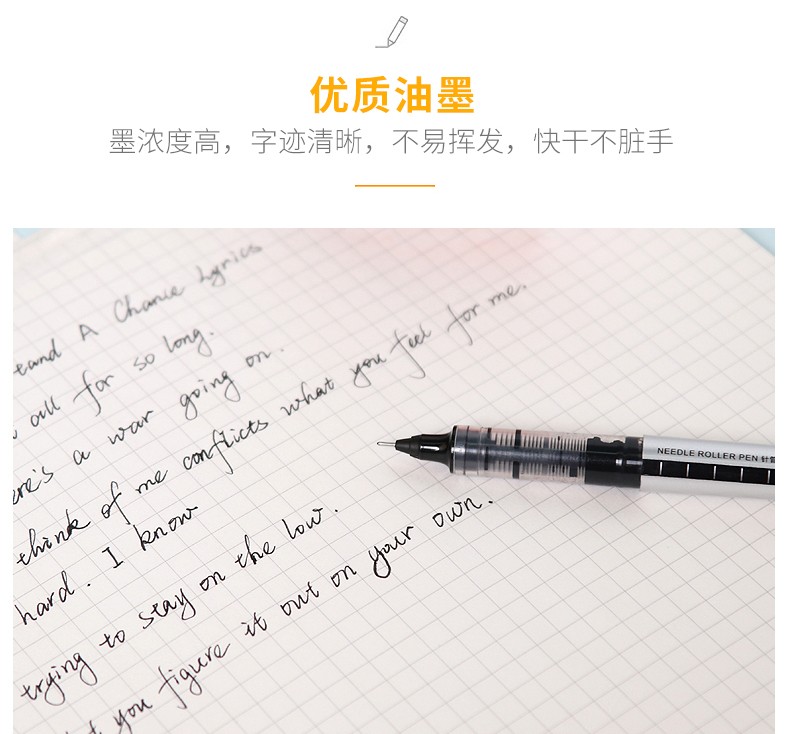 优质油墨
墨浓度高，字迹清晰，不易挥发，快干不脏手
tand A Chance Lyrics
all for so long.
ere's a war going on.
think of me conflicts what you feel for me.
hard. I know
trying to stay on the low.
you figure it out on your own.
NEEDLE ROLLER PEN 针管